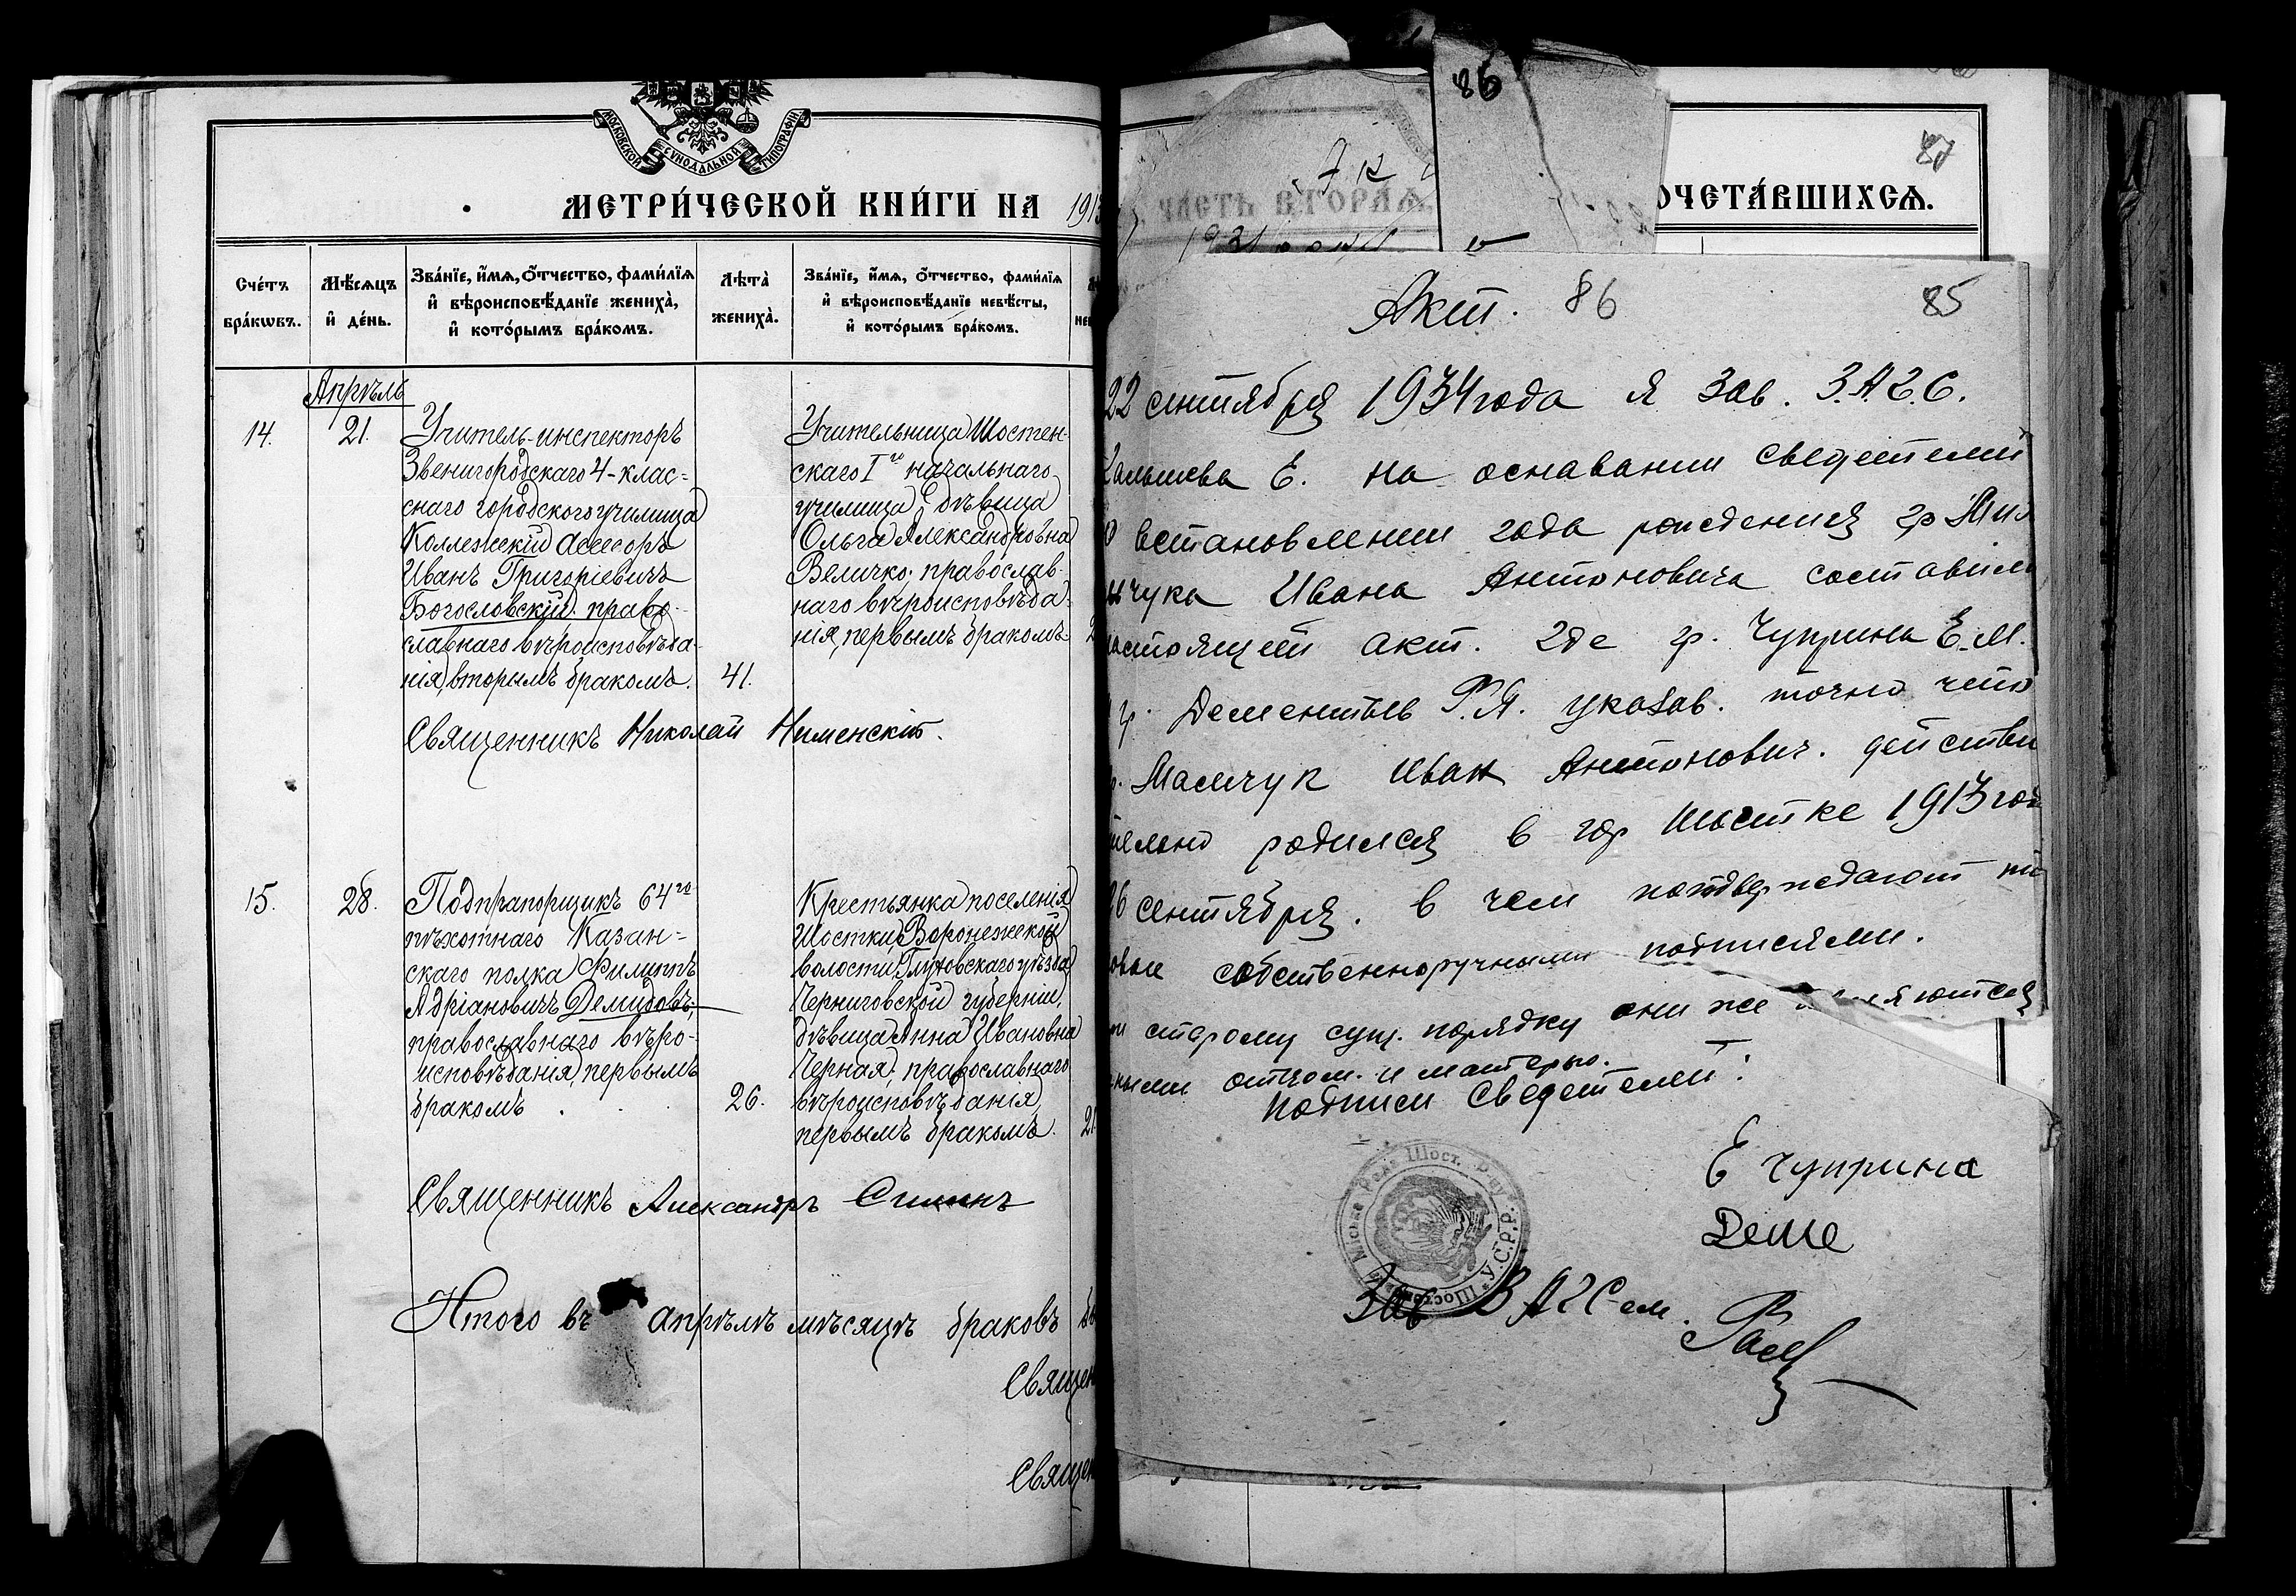 МОСКОВСКОЙ СѴНОДАЛЬНОЙ ТИПОГРАФІИ
МЕТРИ́ЧЕСКОЙ КНИ́ГИ НА 1913
Сче́тъ бра́кѡвъ.
Мѣ́сѧцъ и҆ де́нь.
Зва́нїе, и҆́мѧ, ѻ҆́тчество, фами́лїѧ
и҆ вѣроисповѣ́данїе жениха̀,
и҆ кото́рымъ бра́комъ.
Лѣта̀ жениха̀.
Зва́нїе, и҆́мѧ, ѻ҆́тчество, фами́лїѧ
и҆ вѣроисповѣ́данїе невѣ́сты,
и҆ кото́рымъ бра́комъ.
Апрѣль
14.
21.
Учитель-инспекторъ
Звенигородскаго 4-клас=
снаго городского училища
Коллежскій Асессоръ
Иванъ Григоріевичъ
Богословскій, право-
славнаго вѣроисповѣда-
нія, вторымъ бракомъ.
41.
Учительница Шостен-
скаго Iго начальнаго
училища, дѣвица
Ольга Александровна
Величко, православ-
наго вѣроисповѣда-
нія, первымъ бракомъ
Священникъ Николай
15.
28.
Подпрапорщикъ 64го
пѣхотнаго Казан=
скаго полка Филиппъ
Адріановичъ Демидовъ,
православнаго вѣро-
исповѣданія, первымъ
бракомъ
26.
Крестьянка поселенія
Шостки, Воронежской
волости, Глуховскаго уѣзда,
Черниговской губерніи,
дѣвица Анна Ивановна
Черная, православнаго
вѣроисповѣданія,
первымъ бракомъ.
21
Священникъ Александръ
Итого въ апрѣлѣ мѣсяцѣ браковъ
Священ
Священ
86
87
ЧАСТЬ ВТОРАЯ.
ОЧЕТА́ВШИХСѦ.
Акт. 86
85
22 сентября 1934 года я Зав. З.А.Г.С.
Е. на основании сведетелий
о встановлении года рождения гр
чука Ивана Антоновича составил
настоящей акт. где гр. Чуприна Е.М.
гр. Дементьев Р.Я. указав. точно что
Мамчук Иван Антонович. действи
тельно родился в гор Шостке 1913 год
26 сентября. в чем потдверждают
собственноручными подписями.
старому сущ. порядку они же являются
отцом. и матерью.
Подписи Сведетелей:
Е Чуприна
Деме
Міська Рада Шост. У.С.Р.Р.
Зав ЗАГСом.